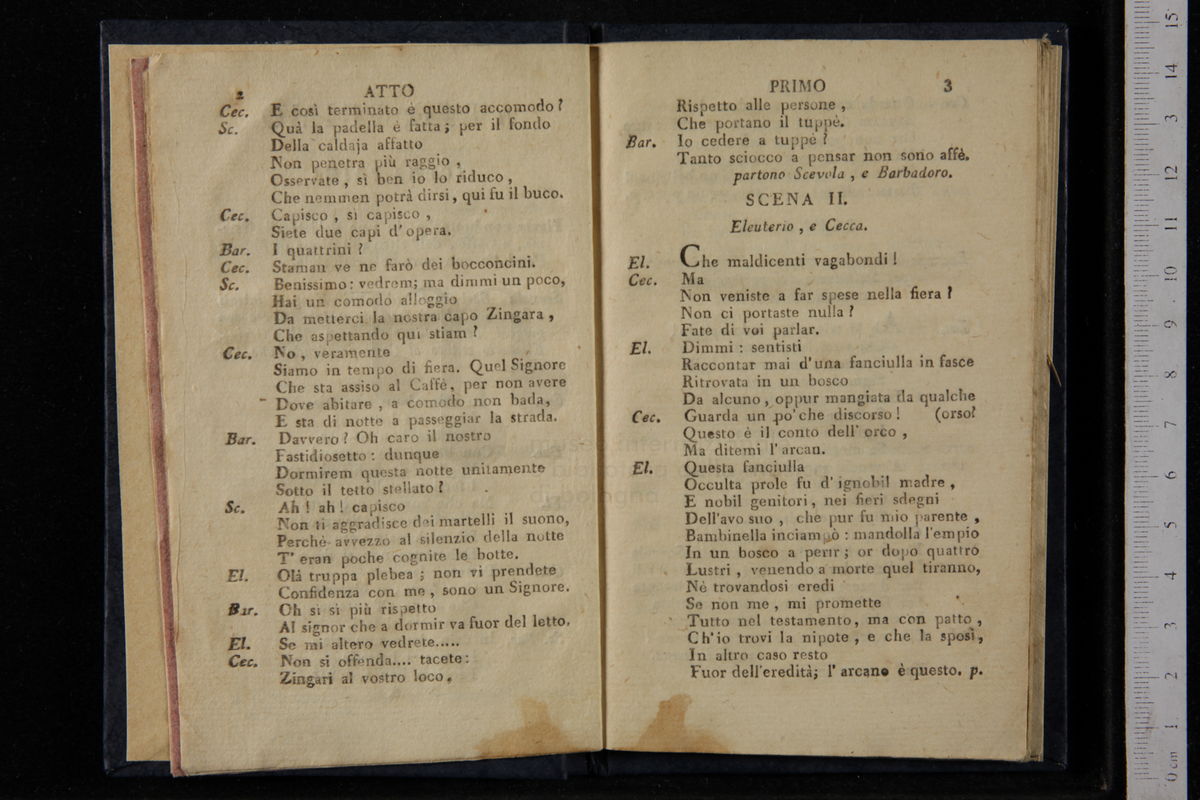 2 ATTO
Cec. E così terminato è questo accomodo?
Sc. Quà la padella è fatta; per il fondo
Della caldaja affatto
Non penetra più raggio,
Osservate, sì ben io lo riduco,
Che nemmen potrà dirsi, qui fu il buco.
Cec. Capisco, sì capisco,
Siete due capi d'opera.
Bar. I quattrini?
Cec. Staman ve ne farò dei bocconcini.
Sc. Benissimo: vedrem; ma dimmi un poco,
Hai un comodo alloggio
Da metterci la nostra capo Zingara,
Che aspettando qui stiam?
Cec. No, veramente
Siamo in tempo di fiera. Quel Signore
Che sta assiso al Caffè, per non avere
Dove abitare, a comodo non bada,
E sta di notte a passeggiar la strada.
Bar. Davvero? Oh caro il nostro
Fastidiosetto: dunque
Dormirem questa notte unitamente
Sotto il tetto stellato?
Sc. Ah! ah! capisco
Non ti aggradisce dei martelli il suono,
Perchè avvezzo al silenzio della notte
T'eran poche cognite le botte.
El. Olà truppa plebea; non vi prendete
Confidenza con me, sono un Signore.
Bar. Oh sì sì più rispetto
Al signor che a dormir va fuor del letto.
El. Se mi altero vedrete.....
Cec. Non si offenda.... tacete:
Zingari al vostro loco.
PRIMO 3
Rispetto alle persone,
Che portano il tuppè.
Bar. Io cedere a tuppè?
Tanto sciocco a pensar non sono affè.
partono Scevola, e Barbadoro.
SCENA II.
Eleuterio, e Cecca.
El. Che maldicenti vagabondi!
Cec. Ma
Non veniste a far spese nella fiera?
Non ci portaste nulla?
Fate di voi parlar.
El. Dimmi: sentisti
Raccontar mai d'una fanciulla in fasce
Ritrovata in un bosco
Da alcuno, oppur mangiata da qualche
Cec. Guarda un po' che discorso! (orso?
Questo è il conto dell'orco,
Ma ditemi l'arcan.
El. Questa fanciulla
Occulta prole fu d'ignobil madre,
E nobil genitori, nei fieri sdegni
Dell'avo suo, che pur fu mio parente,
Bambinella inciampò: mandolla l'empio
In un bosco a perir; or dopo quattro
Lustri, venendo a morte quel tiranno,
Nè trovandosi eredi
Se non me, mi promette
Tutto nel testamento, ma con patto,
Ch'io trovi la nipote, e che la sposi,
In altro caso resto
Fuor dell'eredità; l'arcano è questo. p.
15
14
13
12
11
10
9
8
7
6
5
4
3
2
1
0 cm